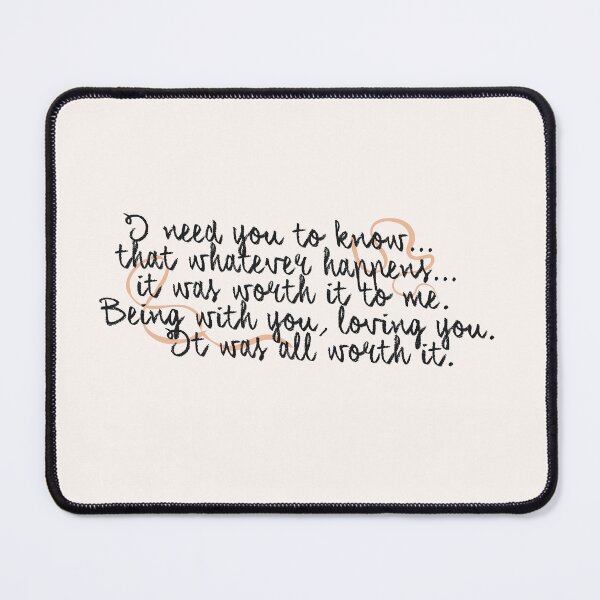 I need you to know...
that whatever happens...
it was worth it to me.
Being with you, loving you.
It was all worth it.